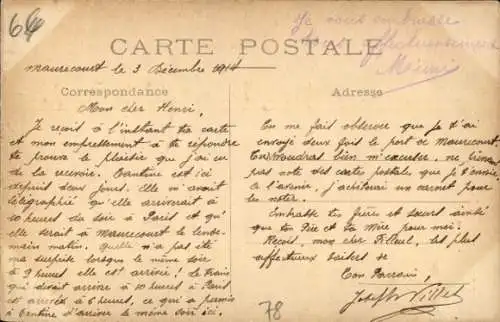 64
Je vous embrasse
tous affectueusement
Mimi
CARTE POSTALE
Maurecourt le 3 Décembre 1914
Correspondance
Adresse
Mon cher Henri,
Je reçois à l'instant ta carte
et mon empressement à te répondre
te prouve le plaisir que j'ai eu
de la recevoir. Tantine est ici
depuis deux jours. Elle m'avait
télégraphié qu'elle arriverait à
10 heures du soir à Paris et qu'
elle serait à Maurecourt le lende-
main matin. Quelle n'a pas été
ma surprise lorsque le même soir
à 9 heures elle est arrivée! Le train
qui devait arriver à 10 heures à Paris
est arrivé à 6 heures, ce qui a permis
à Tantine d'arriver le même soir ici.
Tu me fais observer que je t'ai
envoyé deux fois le port de Maurecourt.
Tu voudras bien m'excuser, ne tenant
pas note des cartes postales que je t'envoie
à l'avenir, j'achèterai un carnet pour
les noter.
Embrasse tes frères et sœurs ainsi
que ton Père et ta Mère pour moi.
Reçois, mon cher Filleul, les plus
affectueux baisers de
Ton Parrain,
Joseph Villet
78